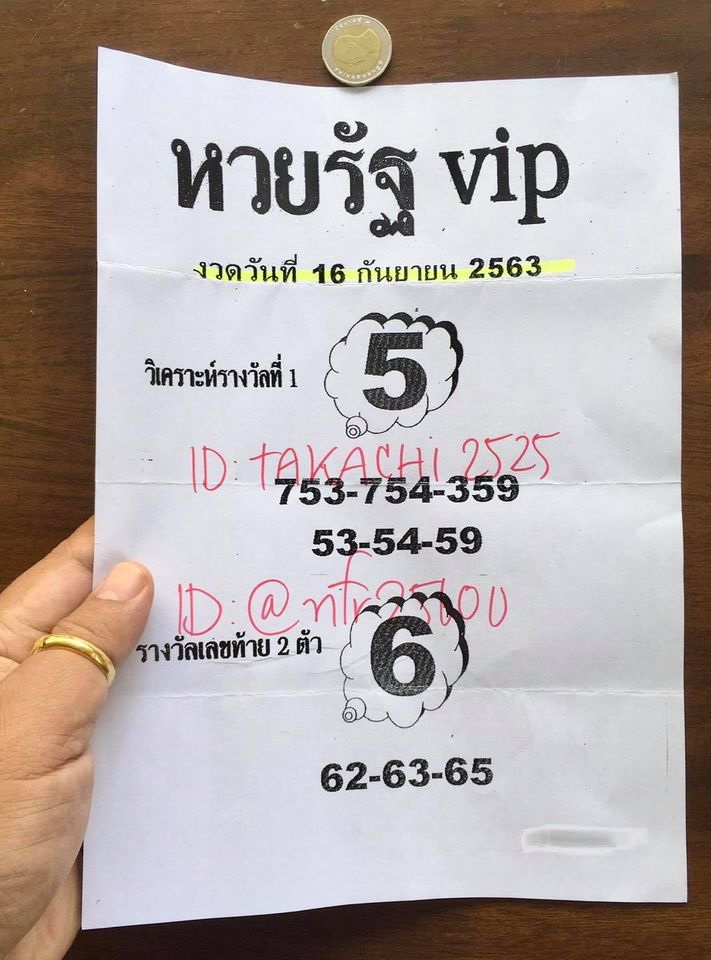 หวยรัฐ vip
งวดวันที่ 16 กันยายน 2563
วิเคราะห์รางวัลที่ 1
5
ID: TAKACHi 2525
753-754-359
53-54-59
รางวัลเลขท้าย 2 ตัว
6
62-63-65